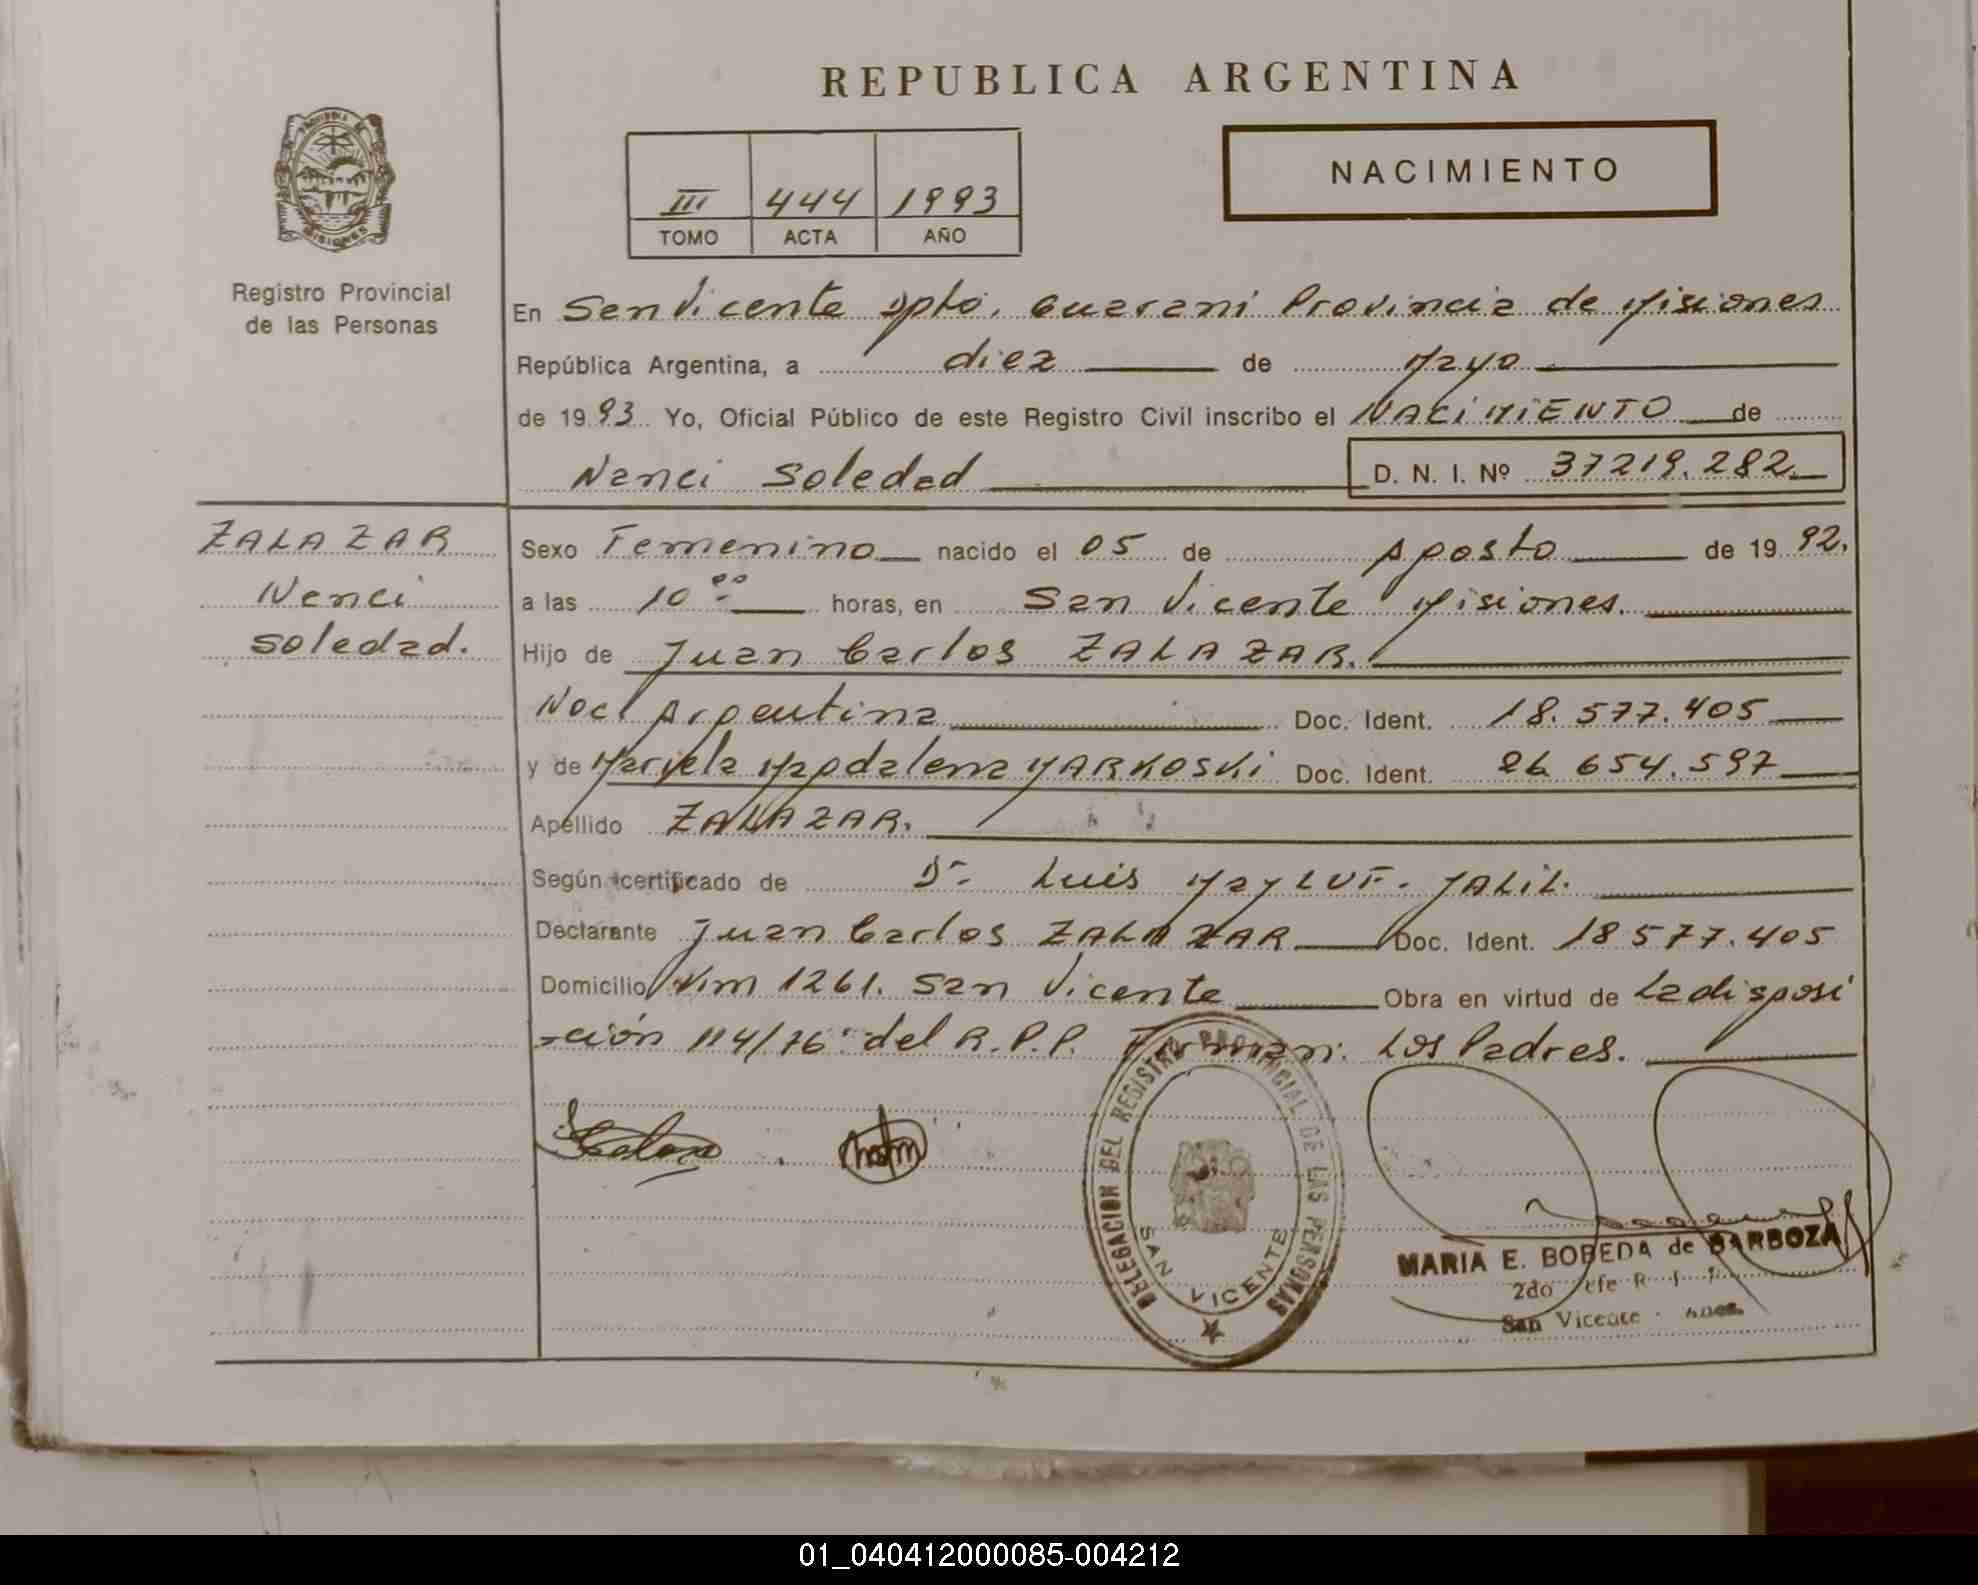 REPUBLICA ARGENTINA
NACIMIENTO
III 444 1993
TOMO ACTA AÑO
PROVINCIA DE MISIONES
Registro Provincial
de las Personas
En San Vicente Dpto. Guarani Provincia de Misiones
República Argentina, a diez de Mayo
de 1993 Yo, Oficial Público de este Registro Civil inscribo el NACIMIENTO de
Nanci Soledad D. N. I. Nº 37219.282.
ZALAZAR
Nanci
Soledad.
Sexo Femenino nacido el 05 de Agosto de 1992.
a las 10 00 horas, en San Vicente Misiones.
Hijo de Juan Carlos ZALAZAR.
Nac/ Argentina Doc. Ident. 18.577.405
y de Mariela Magdalena YARKOSKi Doc. Ident. 26 654.597
Apellido ZALAZAR.
Según certificado de Dr. Luis JALiL.
Declarante Juan Carlos ZALAZAR Doc. Ident. 18577.405
Domicilio 1261. San Vicente Obra en virtud de La disposi
-ción 114/76 del R.P.P. Firman: Los Padres.
DELEGACION DEL REGISTRO PROVINCIAL DE LAS PERSONAS
SAN VICENTE
MARIA E. BOBEDA de BARBOZA
2do Jefe
San Vicente
01_040412000085-004212